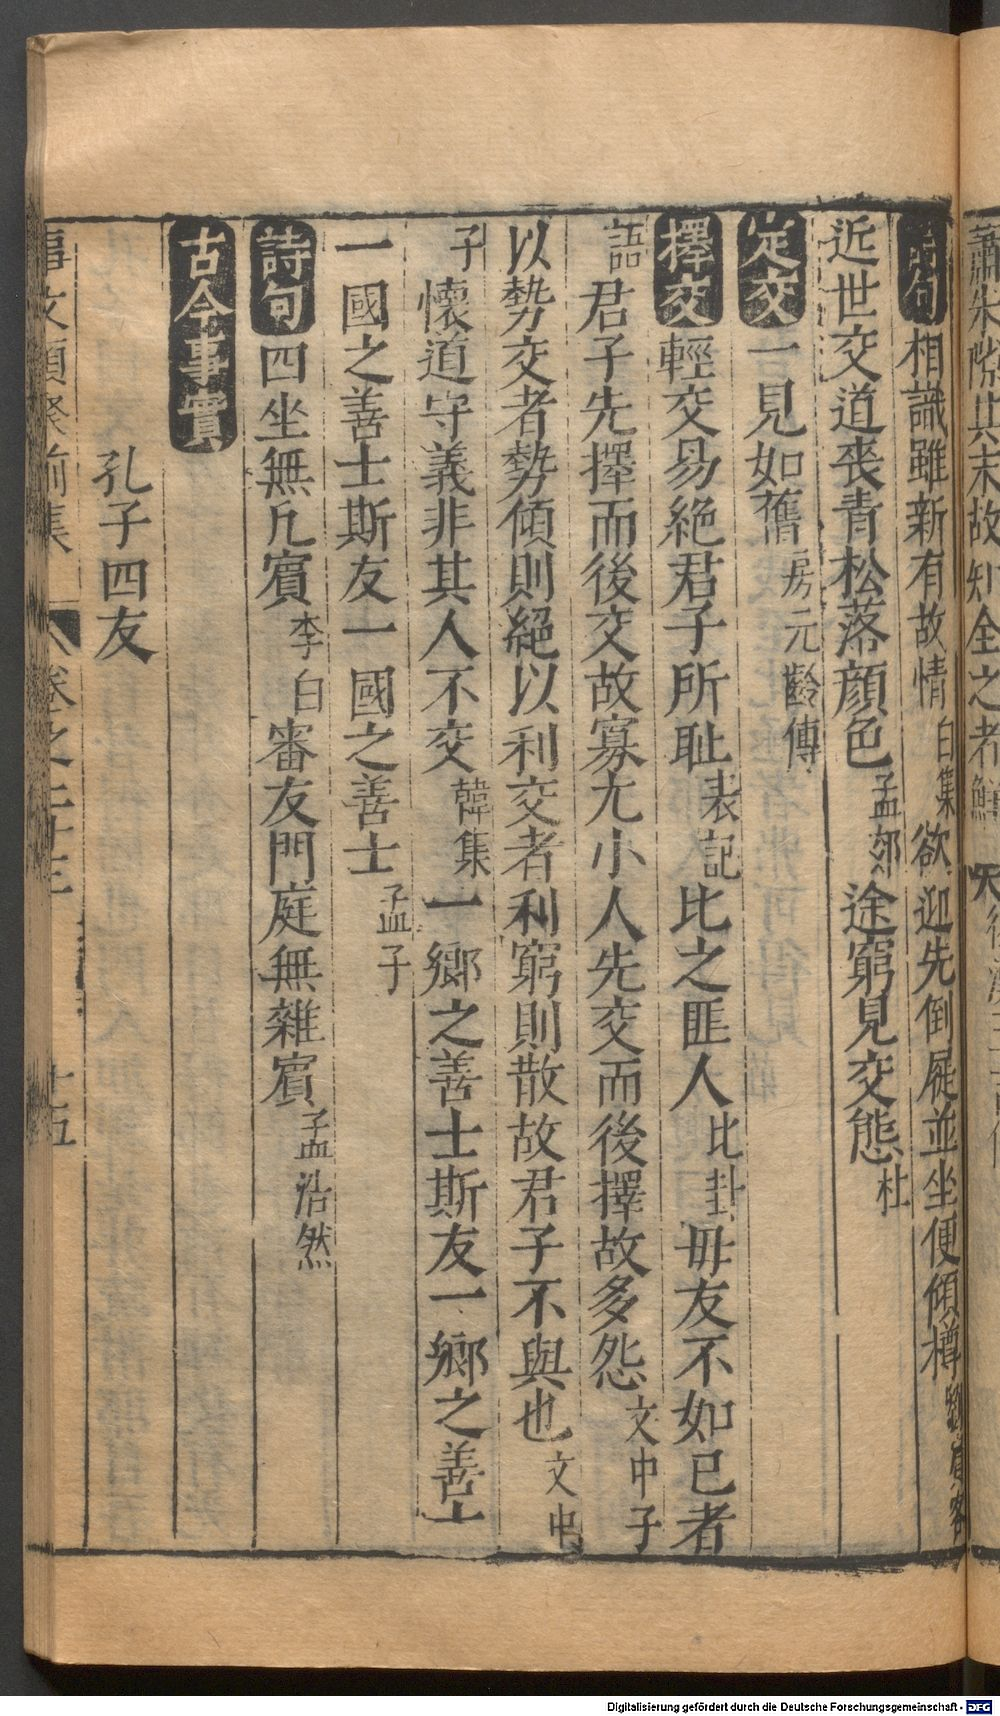 詩句相識雖新有故情白集欲迎先倒屣並坐便傾樽劉賓客
近世交道喪青松落顔色孟郊途窮見交態杜
定交一見如舊房元齡傳
擇交輕交易絶君子所耻表記比之匪人比卦毋友不如已者
語君子先擇而後交故寡尤小人先交而後擇故多怨文中子
以勢交者勢傾則絕以利交者利窮則散故君子不與也文中
子懷道守義非其人不交韓集一鄉之善士斯友一鄉之善士
一國之善士斯友一國之善士孟子
詩句四坐無凡賓李白審友門庭無雜賓孟浩然
古今事實
孔子四友
事文類聚前集 卷之二十三 十五
Digitalisierung gefördert durch die Deutsche Forschungsgemeinschaft - DFG